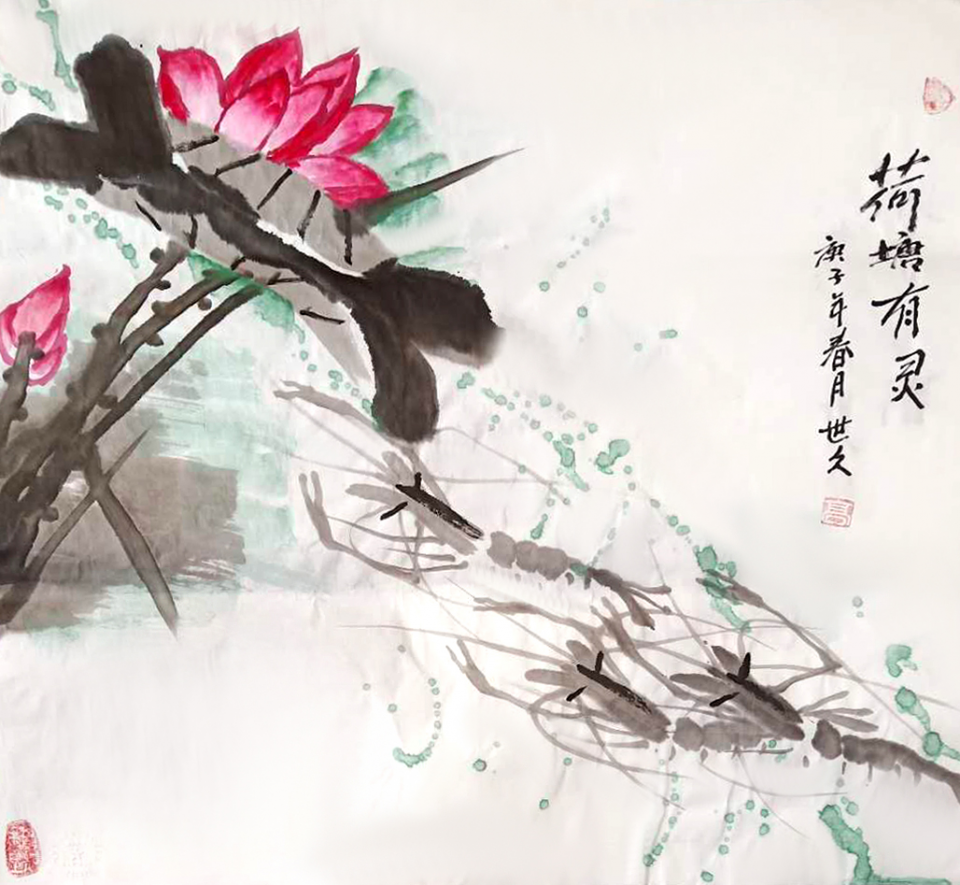 荷塘有灵
庚子年春月世久